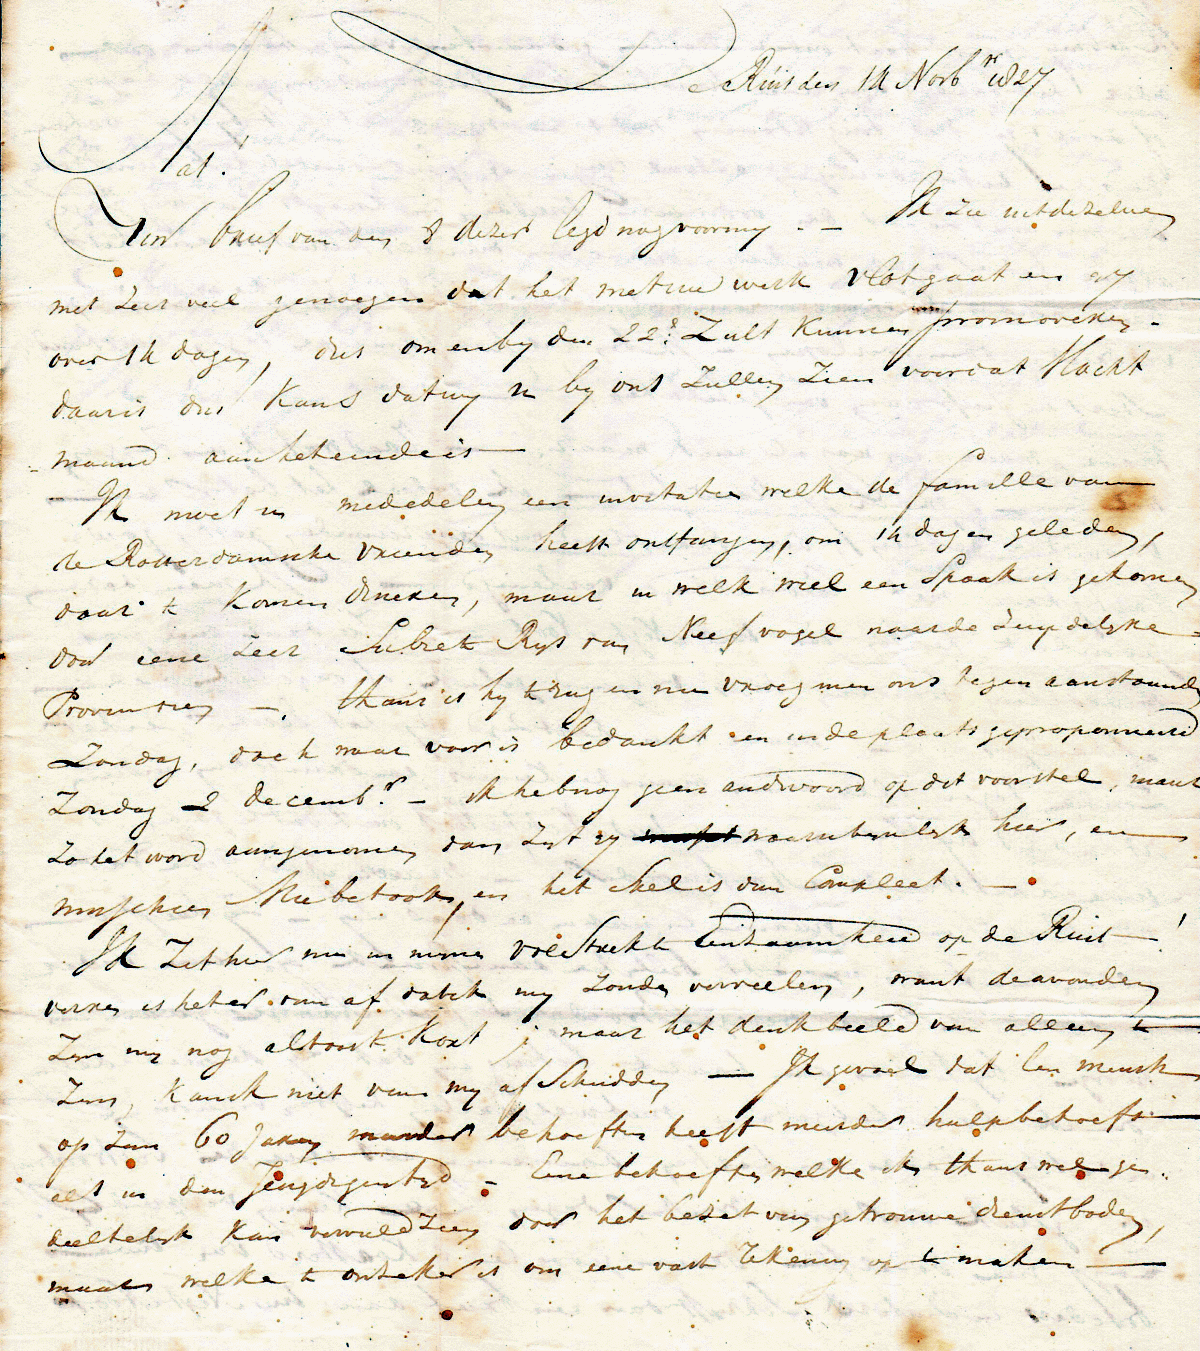 Ruist den 14 Novbr 1827
Uw brief van den 8 dezer legd nog voor my . — Ik zie uit dezelven
met zeer veel genoegen dat het met uw werk vlot gaat en gy
over 14 dagen, dus om en by den 22e: Zult Kunnen promoveren -
daar is dus Kans dat wy u by ons Zullen Zien voor dat Slacht
maand aan het einde is —
Ik moet u mededelen een invitatie welke de familie van
de Rotterdamsche vrienden heeft ontfangen, om 14 dagen geleden,
daar te Komen dineren, maar in welk wiel een Spaak is gekomen
door eene zeer Subiete Rys van Neef vogel naar de Zuydelyke
Provintien — . thans is hy terug en nu vroeg men ons tegen aanstaande
Zondag, doch waar voor is bedankt en in de plaats geproponneerd
Zondag 2 Decembr. — ik heb nog geen andwoord op dit voorstel, maar
Zo het word aangenomen dan Zyt gy waarschynlyk hier, en
misschien Mie betook, en het Stel is dan Compleet. —
Ik Zit hier nu in mine volstrekte Eenzaamheid op de Ruist — !
verre is het er van af dat ik my Zoude verveelen, want de avonden
Zyn my nog altoost Kort ; maar het denkbeeld van alleen te
Zyn, Kan ik niet van my af Schudden — Ik gevoel dat een mensch
op Zyn 60 Jaren minder behoeften heeft minder hulpbehoeft
als in den Jeugdigentyd — Eene behoefte welke ik thans wel ge-
deeltelyk Kan vervuld Zien door het bezit van getrouwe dienstboden,
maar welke te onzeker is om eene vaste Rekening op te maken —